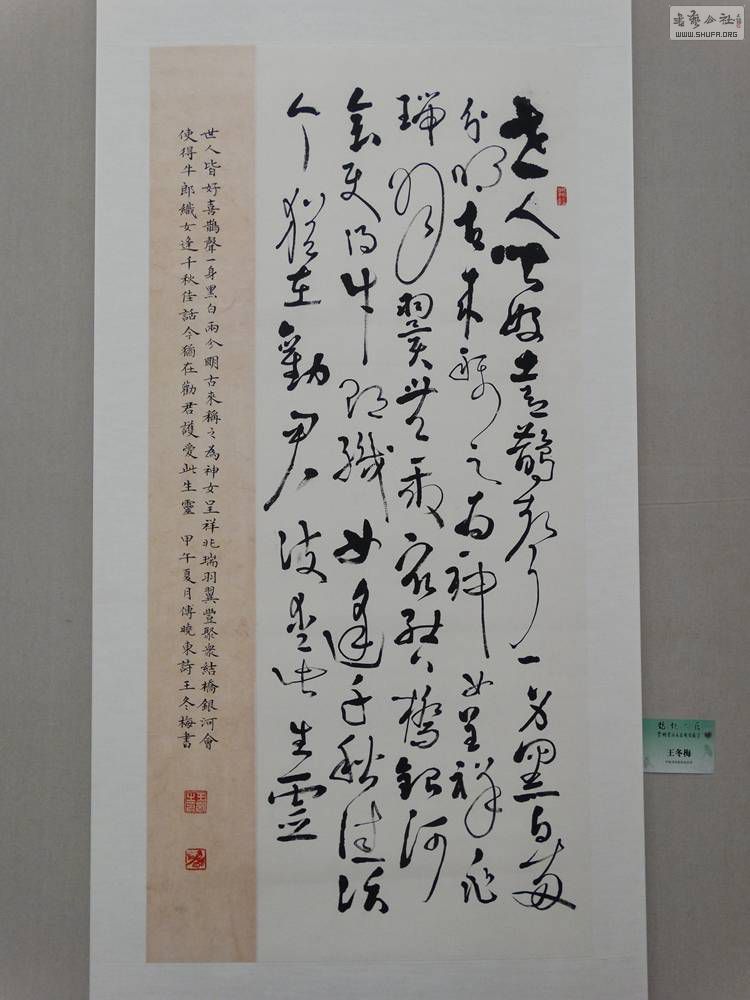 世人皆好喜鵲聲一身黑白兩
分明古來稱之為神女呈祥兆
瑞羽翼豐聚衆結橋銀河
會使得牛郎織女逢千秋佳話
今猶在勸君護愛此生靈
世人皆好喜鵲聲一身黑白兩分明古來稱之為神女呈祥兆瑞羽翼豐聚衆結橋銀河會
使得牛郎織女逢千秋佳話今猶在勸君護愛此生靈 甲午夏月傅曉東詩王冬梅書
王冬梅
書藝公社
WWW.SHUFA.ORG